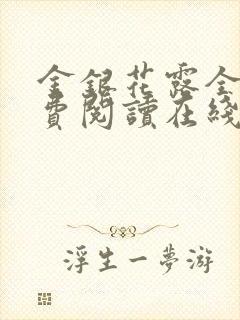 金銀花露全
費閱讀在綫
浮生一夢游